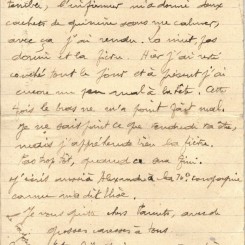 tendre, l'infirmier m'a donné deux
cachets de quinine pour me calmer,
avec ça j'ai rendu. La nuit, pas
dormi et la fièvre. Hier j'ai resté
couché tout le jour et à présent j'ai
encore un peu mal à la tête. Cette
fois le bras ne m'a point fait mal.
Je ne sais point ce que
mais j'appréhende bien la fièvre.
pas trop tôt, quand ce sera fini.
J'écris aussi à Alexandre à la 70e compagnie
comme m'a dit
Je vous quitte chers parents, avec de
grosses caresses à tous